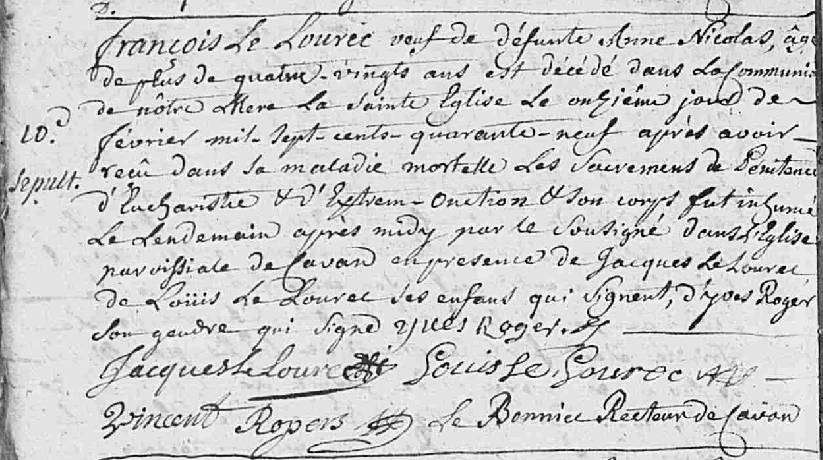 François Le Lourec veuf de défunte Anne Nicolas, âgé
de plus de quatre-vingts ans est décédé dans La Communio
de nôtre Mere La Sainte Eglise Le onziême jour de
10.e
février mil-sept-cents-quarante-neuf après avoir
reçû dans sa maladie mortelle Les Sacremens de Pénitence
Sepult.
d'Eucharistie & d'Extrem-onction & son corps fut inhumé
Le Lendemain après midy par le Sousigné dans L'Eglise
paroissiale de Cavan en presence de Jacques Le Lourec
de Loüis Le Lourec ses enfans qui signent, d'yves Roger
son gendre qui signe yves Roger.
Jacques Le Lourec Louis Le Lourec
Vincent Rogers Le Bonniec Recteur de Cavan